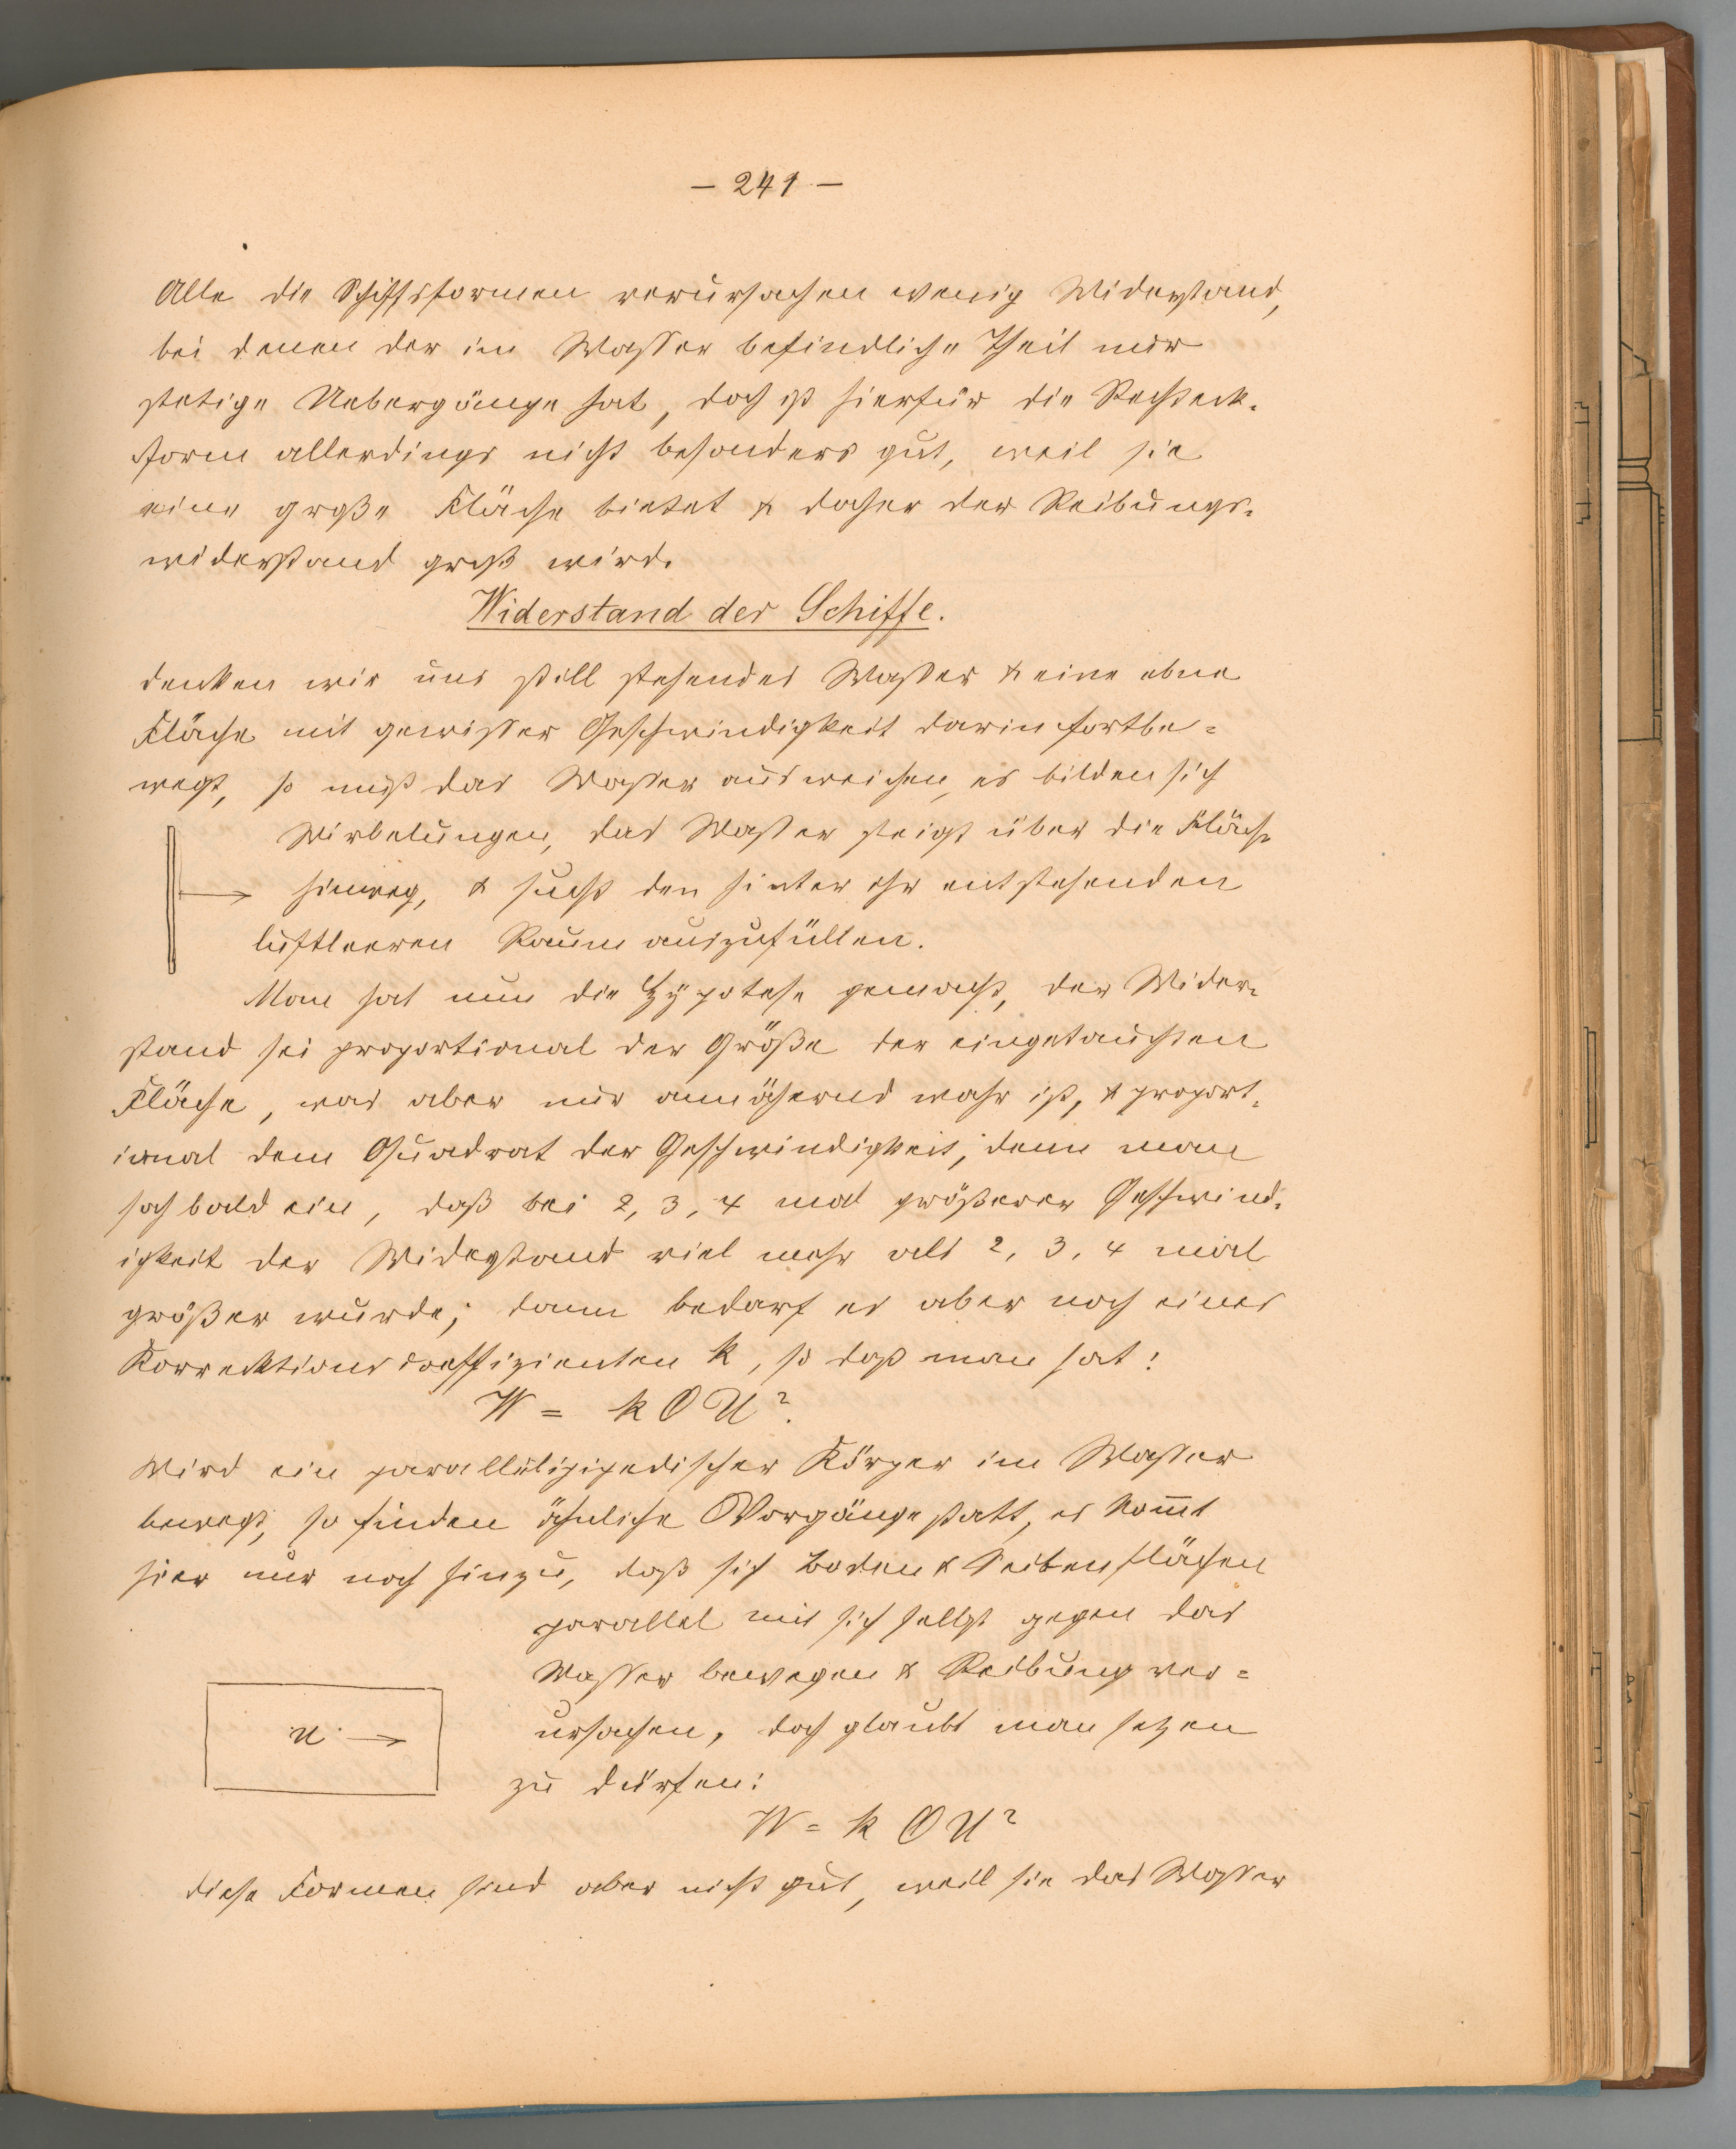 – 241 –
Alle die Schiffsformen verursachen wenig Widerstand,
bei denen der im Wasser befindliche Theil nur
stetige Uebergänge hat, doch ist hierfür die Rechteck-
form allerdings nicht besonders gut, weil sie
eine große Fläche bietet & daher der Reibungs-
widerstand groß wird.
Widerstand der Schiffe.
denken wir uns still stehendes Wasser & eine ebne
Fläche mit gewisser Geschwindigkeit darin fortbe-
wegt, so muß das Wasser ausweichen, es bilden sich
Wirbelungen, das Wasser steigt über die Fläche
hinweg, & sucht den hinter ihr entstehenden
luftleeren Raum auszufüllen.
Man hat nun die Hypotese gemacht, der Wider-
stand sei proportional der Größe der eingetauchten
Fläche, was aber nur annähernd wahr ist, & proport-
ional dem Quadrat der Geschwindigkeit, denn man
sah bald ein, daß bei 2, 3, 4 mal größerer Geschwind-
igkeit der Widerstand viel mehr als 2, 3, 4 mal
größer wurde; dann bedarf es aber noch eines
Korrektionscoeffizienten k, so daß man hat:
W = k O U².
Wird ein parallelipipedischer Körper im Wasser
bewegt, so finden ähnliche Vorgänge statt, es kom̅t
hier nur noch hinzu, daß sich Boden & Seitenflächen
parallel mit sich selbst gegen das
Wasser bewegen & Reibung ver-
ursachen, doch glaubt man setzen
u →
zu dürfen:
W = k O U²
diese Formen sind aber nicht gut, weil sie das Wasser